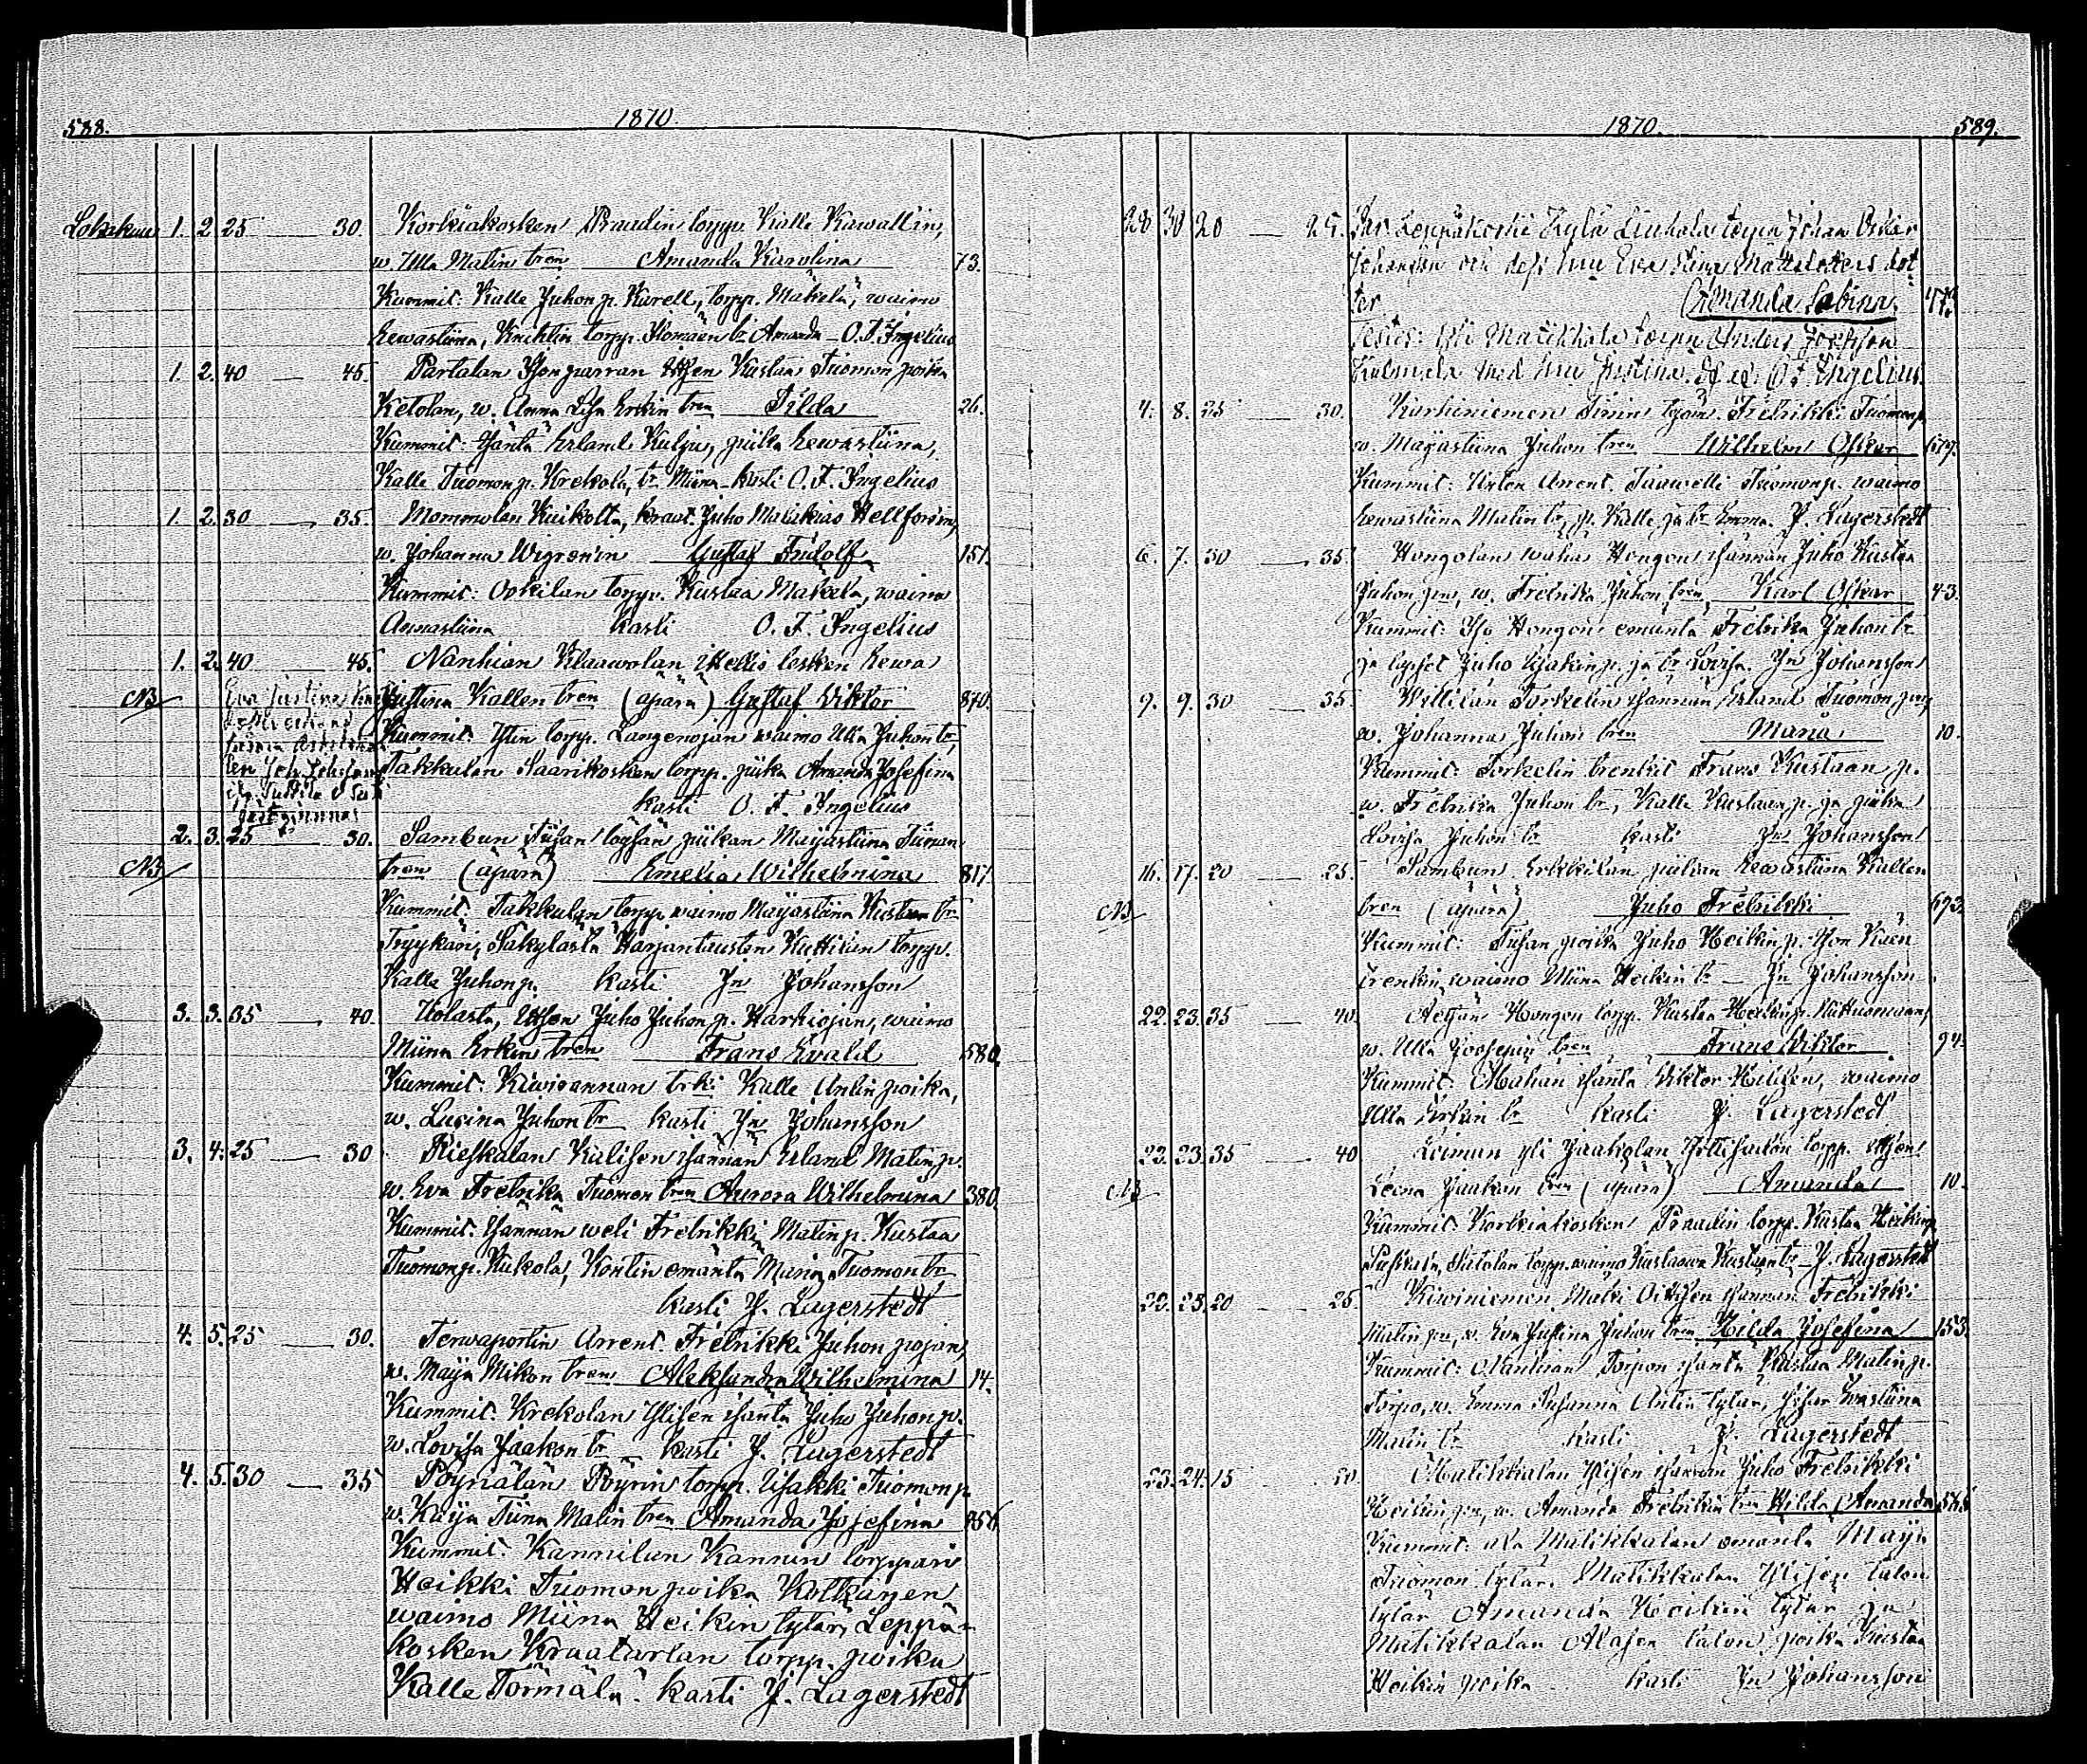 588. 1870.
Lokakuu 1. 2. 25 — 30. Korkiakosken Praadin torpp. Kalle Kawallin,
w. Ulla Matin tren Amanda Karolina 73.
Kummit: Kalle Juhon p. Karell, torpp. Mäkelä, waimo
Eewastiina, Knihtin torpp. tr Amanda — O. F. Ingelius
1. 2. 40 — 45. Partalan Ison parran Itsen Kustan Tuomon poika
Ketolan, w. Anna Lisa Erkin tren Tilda 26.
Kummit: Isäntä Erland Kulju, piika Eewastiina,
Kalle Tuomon p. Krekola, tr Miina — kasti O. F. Ingelius
1. 2. 30 — 35. Mommolan Kuikolta, kraat. Juho Malakias Hellforsin,
w. Johanna Wigrenin Gustaf Fridolf 151.
Kummit: Orkilan torpp. Kustaa Mäkelä, waimo
Annastiina kasti O. F. Ingelius
1. 2. 40 — 45. Nanhian Klaawolan itellis lesken Eewa
NB Justina Kallen tren (äpärä) Gustaf Viktor 870.
Kummit: torpp. Langenojan waimo Ulla Juhon tr,
Takkulan Saarikosken torpp. piika Amanda Josefina
kasti O. F. Ingelius
2. 3. 25 — 30. Sambun löysän piikan Majastiina Tiinan
NB tren (äpärä) Emelia Wilhelmina 817.
Kummit: Takkulan torpp. waimo Majastiina Kustaan tr
Tryykäri, Säkylästä Harjantaustan Kuttilan torpp.
Kalle Juhon p. kasti Jn Johansson
3. 3. 35 — 40. Uolasta, Itsen Juho Juhon p. Harkiojan, waimo
Miina Erkin tren Frans Evald 580.
Kummit: Kiwisannan trki Kalle Antin poika,
w. Lusina Juhon tr kasti Jn Johansson
3. 4. 25 — 30 Rieskalan Kalisen isännän Erland Matin p.
w. Eva Fredrika Tuomon tren Aurora Wilhelmina 380.
Kummit: Isännän weli Fredrikki Matin p. Kustaa
Tuomon p. Kukola, Kontin emäntä Maria Tuomon tr
kasti J. Lagerstedt
4. 5. 25 — 30. Terwaportin Arrent. Fredrikki Juhon pojan,
w. Maija Mikon tren Aleksandra Wilhelmina 14.
Kummit: Krekolan Ylisen isäntä Juho Juhon p.
w. Lovisa Jaakon tr kasti J. Lagerstedt
4. 5. 30 — 35 Pöyriälän Pöyrin torpp. Isakki Tuomon p.
w. Kaija Tiina Matin tren Amanda Josefina 256.
Kummit: Kannilan Kannun torppari
Heikki Tuomon poika Kotkajen
waimo Miina Heikin tytär, Leppä-
kosken Kraatarlan torpp. poika
Kalle Törmälä. kasti J. Lagerstedt
1870. 589.
28 30 20 — 25. Leppäkoski Kylä Liuhala torpp Johan Oskar
Johansson och dess hru Eva Lina Mattsdotters dot
ter Amanda Sabina.
Testes: Matikkala torpp Anders Josefsson
Kulmala med hru Justina. O. F. Ingelius
4. 8. 25 — 30. Karhiniemen Fredrikki Tuomon p.
w. Majastiina Juhon tren Wilhelm Oskar 679.
Kummit: Arrent. Taawetti Tuomon p. waimo
Eewastiina Matin tr, p. Kalle ja tr Emma. J. Lagerstedt
6. 7. 30 — 35. Hongolan waha Hongon isännän Juho Kustaa
Juhon pn, w. Fredrika Juhon tren Karl Oskar 43.
Kummit: Iso Hongon emäntä Fredrika Juhon tr
ja lapset Juho Isakin p. ja tr Lovisa. Jn Johansson
9. 9. 30 — 35. Willilän Torkelin isännän Erland Tuomon pn,
w. Johanna Juhon tren Maria 10.
Kummit: Torkelin trenkit Frans Kustaan p.
w. Fredrika Juhon tr, Kalle Kustaan p. ja piika
Lovisa Juhon tr kasti Jn Johansson
16. 17. 20 — 25. Sambun Erkkilän piikan Eewastiina Kallen
NB tren (äpärä) Juho Fredrikki 673.
Kummit: poika Juho Heikin p. Ison
trenkin waimo Miina Heikin tr — Jn Johansson
22. 23. 35 — 40. Hongon torpp. Kustaa Heikin p.
w. Ulla Joosepin tren Frans Viktor 94.
Kummit: Mahan isäntä Viktor waimo
Ulla Erkin tr kasti J. Lagerstedt
22. 23. 35 — 40 Leiman yli Jaakolan torpp. Itsen
NB Leena Jaakon tren (äpärä) Amanda 10.
Kummit: Korkiakosken Praadin torpp. Kustaa Heikin p.
torpp. waimo Kustaawa Kustaan tr — J. Lagerstedt
22. 23. 20 — 25. Kiwiniemen isännän Fredrikki
Matin pn, w. Eva Justina Juhon tren Hilda Josefina 153.
Kummit: Nanhian Torpon isäntä Kustaa Matin p.
Torpo, w. Emma Susanna Antin tytär, Evastiina
Matin tr kasti J. Lagerstedt
23. 24. 15 — 20. Matikkalan Ylisen isännän Juho Fredrikki
Heikin pn, w. Amanda Fredrikin tren Hilda Amanda
Kummit: Ala Matikkalan emäntä Maija
Tuomon tytär, Matikkalan Ylisen talon
tytär Amanda Heikin tytär ja
Matikkalan Alasen talon poika Kustaa
Heikin poika kasti Jn Johansson